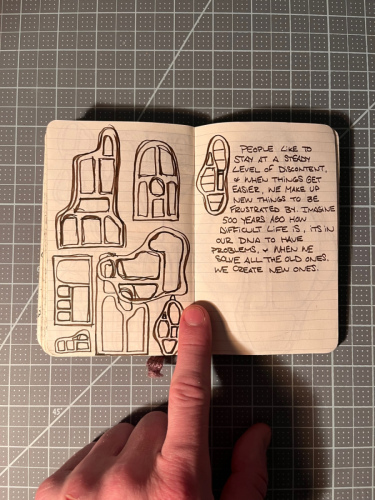 PEOPLE LIKE TO
STAY AT A STEADY
LEVEL OF DISCONTENT.
& WHEN THINGS GET
EASIER, WE MAKE UP
NEW THINGS TO BE
FRUSTRATED BY. IMAGINE
500 YEARS AGO HOW
DIFFICULT LIFE IS, ITS IN
OUR DNA TO HAVE
PROBLEMS, & WHEN WE
SOLVE ALL THE OLD ONES.
WE CREATE NEW ONES.
45°